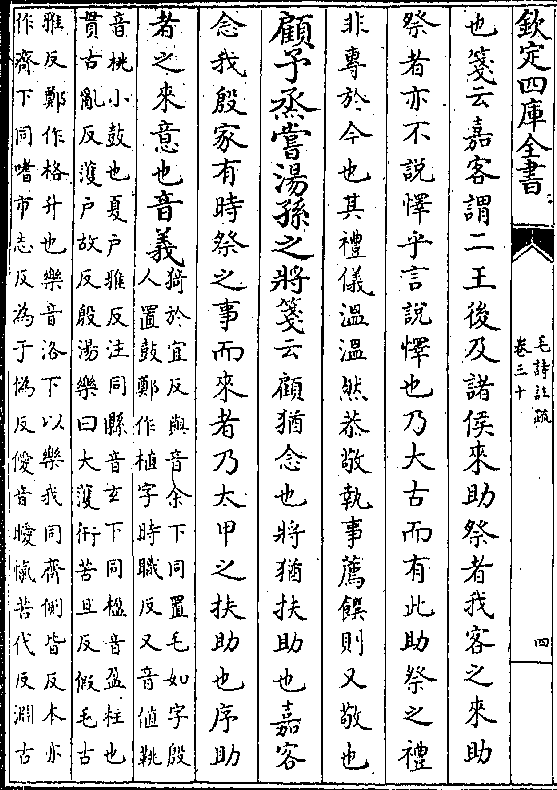 欽定四庫全書
毛詩註疏
卷三十
四
也箋云嘉客謂二王後及諸侯來助祭者我客之來助
祭者亦不說懌乎言說懌也乃大古而有此助祭之禮
非專於今也其禮儀溫溫然恭敬執事薦饌則又敬也
顧予烝嘗湯孫之將箋云顧猶念也將猶扶助也嘉客
念我殷家有時祭之事而來者乃太甲之扶助也序助
者之來意也音義
猗於宜反與音余下同置毛如字殷
人置鼓鄭作植字時職反又音值鞉
音桃小鼓也夏戶雅反注同縣音玄下同楹音盈柱也
貫古亂反濩戶故反殷湯樂曰大濩衎苦旦反假毛古
雅反鄭作格升也樂音洛下以樂我同齊側皆反本亦
作齋下同嗜市志反為于偽反僾音曖愾苦代反淵古